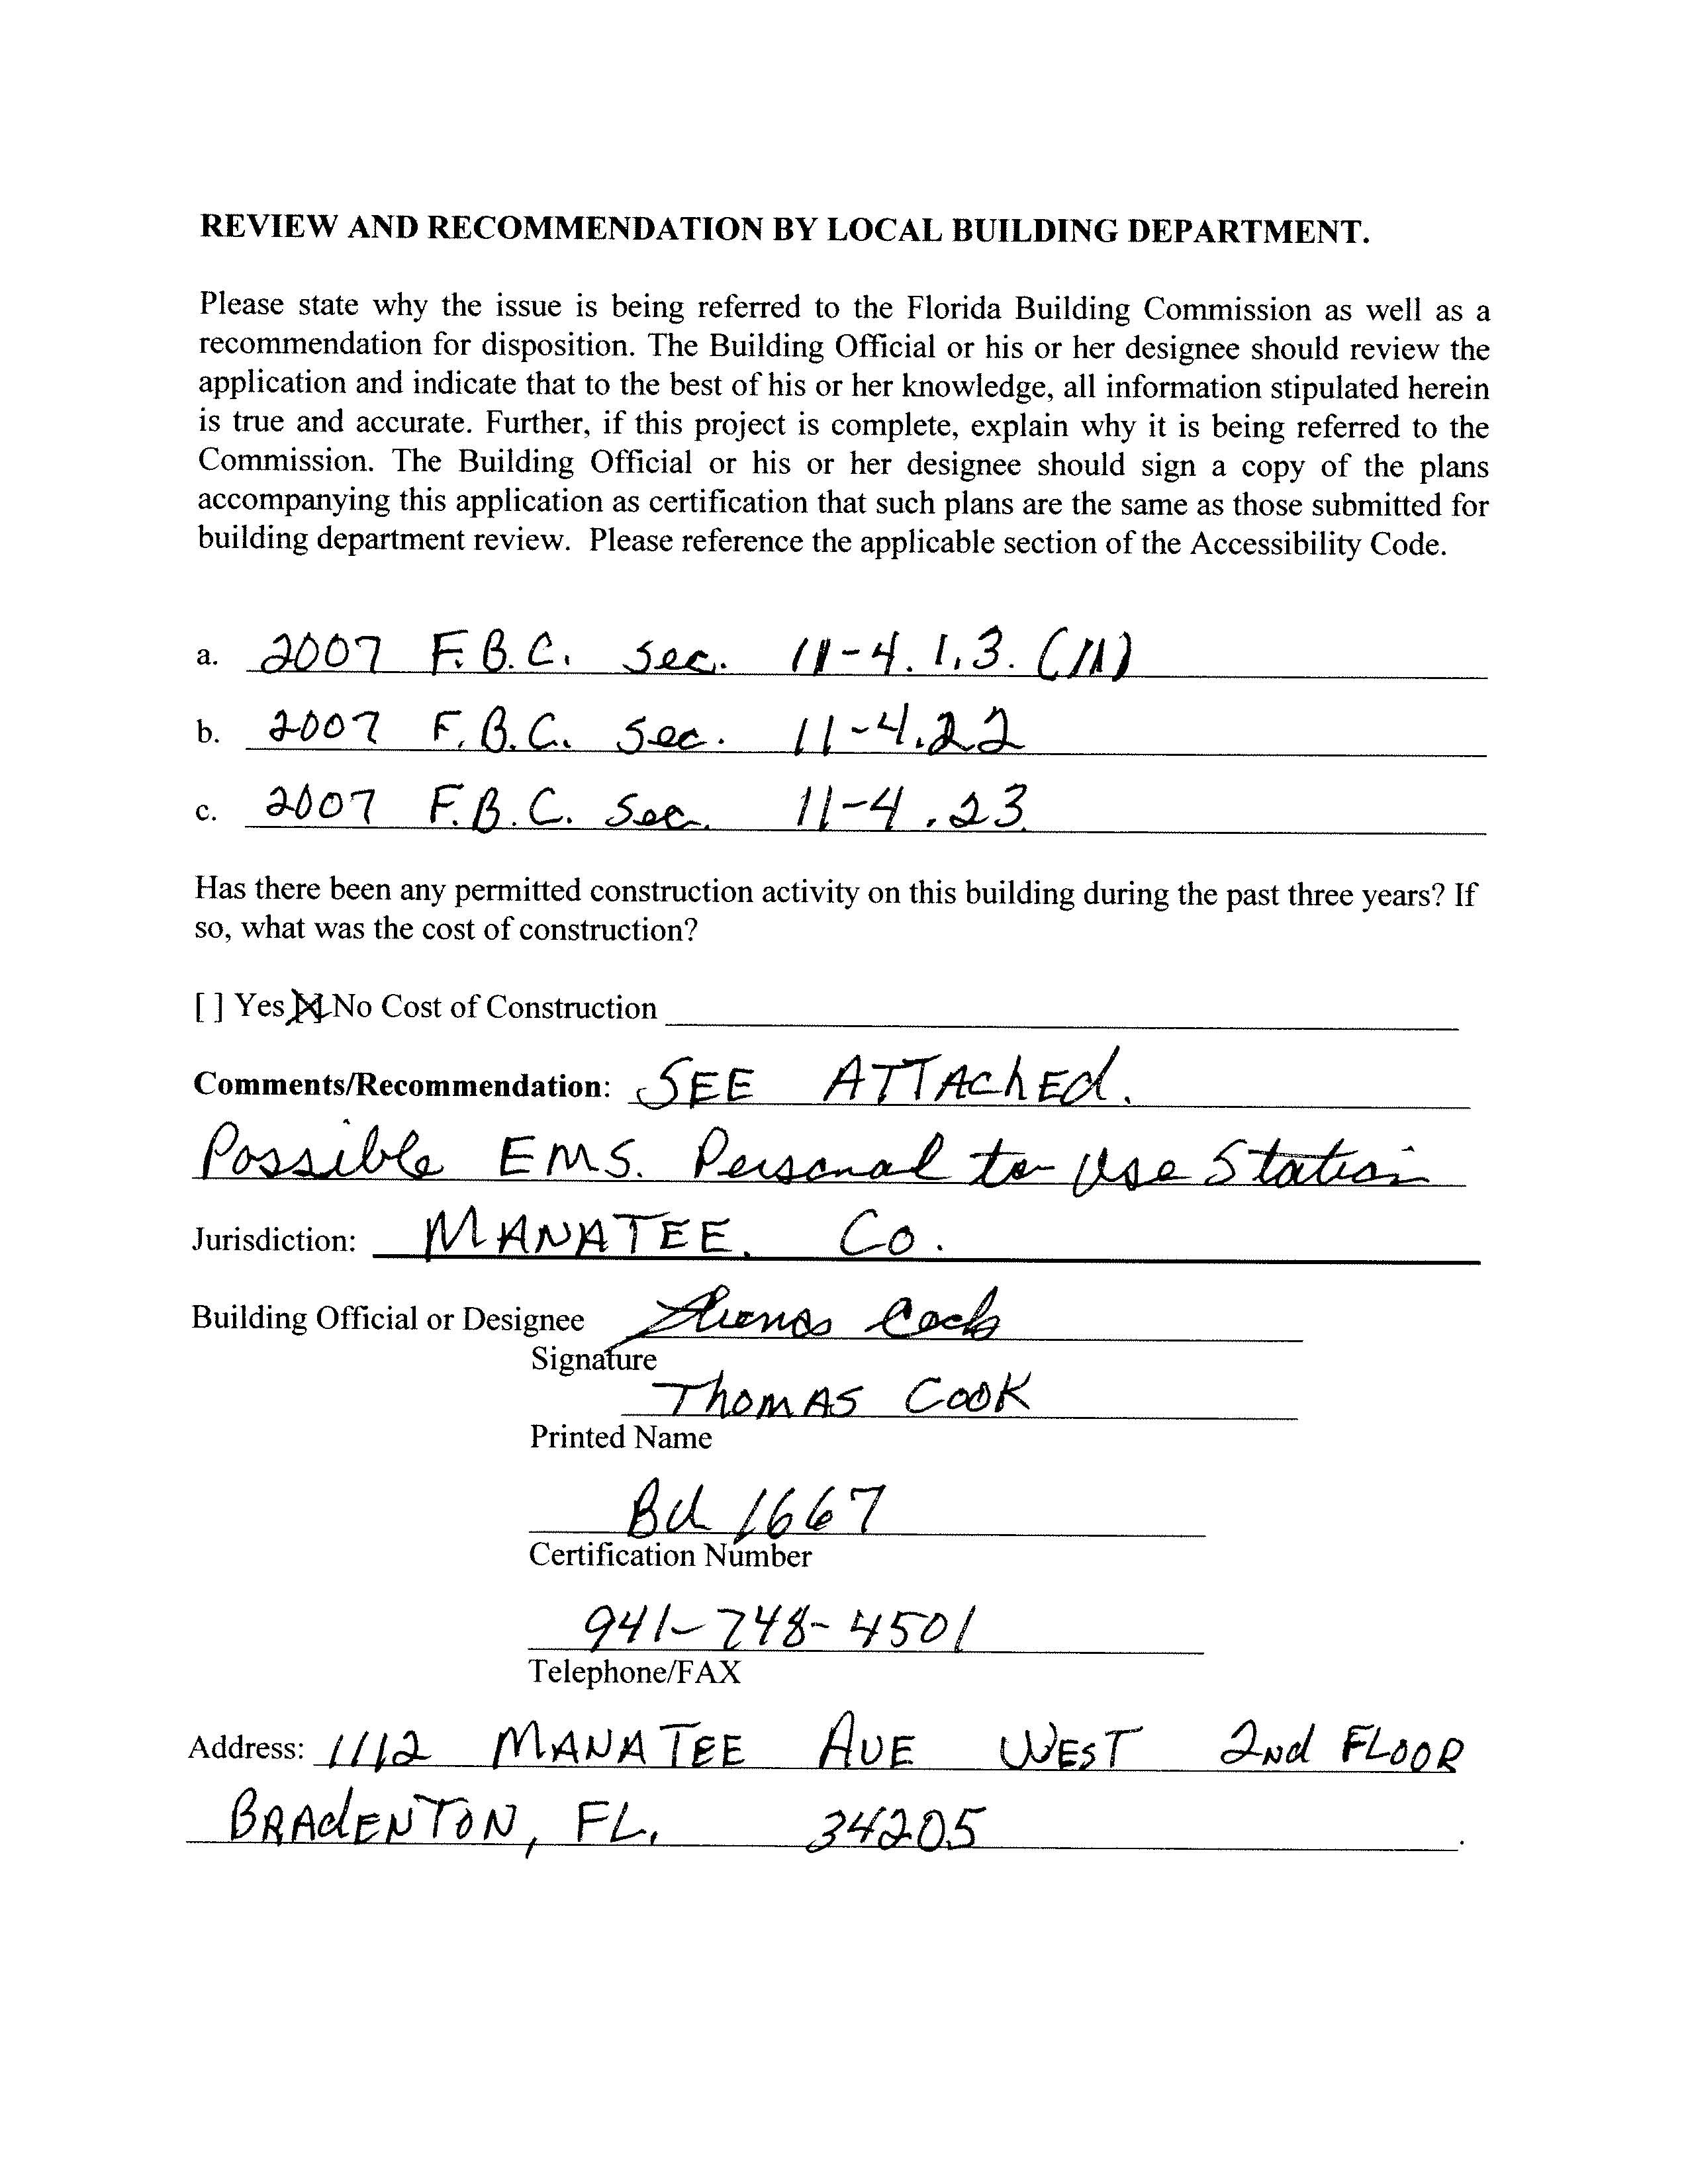 REVIEW AND RECOMMENDATION BY LOCAL BUILDING DEPARTMENT.
Please state why the issue is being referred to the Florida Building Commission as well as a
recommendation for disposition. The Building Official or his or her designee should review the
application and indicate that to the best of his or her knowledge, all information stipulated herein
is true and accurate. Further, if this project is complete, explain why it is being referred to the
Commission. The Building Official or his or her designee should sign a copy of the plans
accompanying this application as certification that such plans are the same as those submitted for
building department review. Please reference the applicable section of the Accessibility Code.
a. 2007 F.B.C. Sec. 11-4.1.3. (11)
b. 2007 F.B.C. Sec. 11-4.22
c. 2007 F.B.C. Sec. 11-4.23
Has there been any permitted construction activity on this building during the past three years? If
so, what was the cost of construction?
[ ] Yes [X] No Cost of Construction
Comments/Recommendation: SEE ATTAChEd.
Possible EMS. Personal to Use Station
Jurisdiction: MANATEE. Co.
Building Official or Designee Thomas Cook
Signature
ThomAS COOK
Printed Name
BU 1667
Certification Number
941-748-4501
Telephone/FAX
Address: 1112 MANATEE AVE WEST 2Nd FLOOR
BRAdENTON, FL. 34205